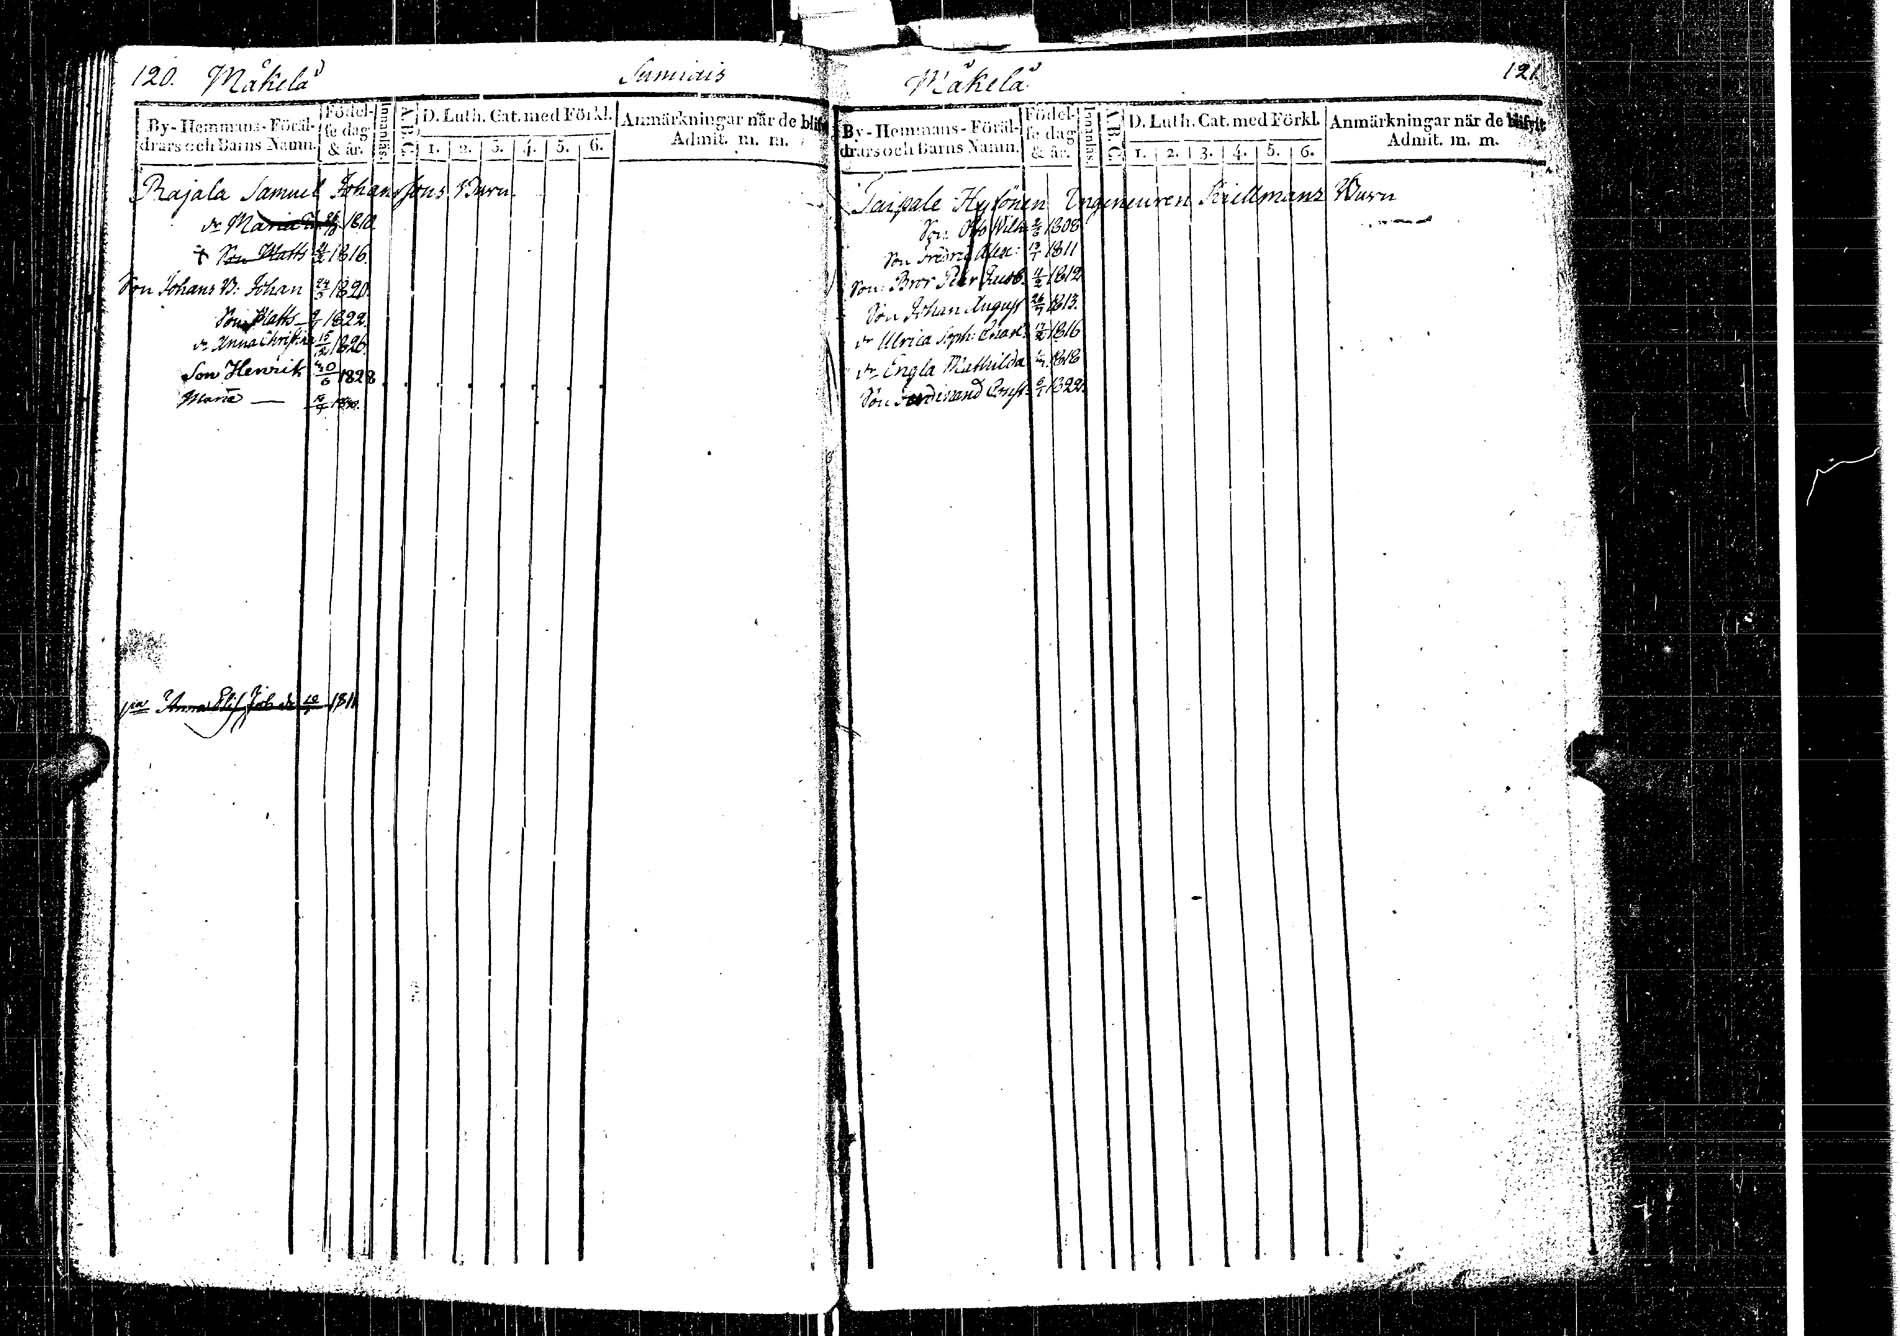 120. Mäkelä Sumiais
By-Hemmans-Föräl-
drars och Barns Namn.
Födel-
se dag
& år.
Innanläs.
A.B.C.
D. Luth. Cat. med Förkl.
1. 2. 3. 4. 5. 6.
Anmärkningar när de blifvit
Admit. m. m.
Rajala Samuel Johanssons Barn
dr Maria 1810
† Son Matts 1816.
Son Johans B: Johan 1820.
Son Matts 1822.
dr Anna Christina 15/12 1826.
Son Henrik 30/6 1828
Maria —
Anna Elis 1811
Mäkelä 121
By-Hemmans-Föräl-
drars och Barns Namn.
Födel-
se dag
& år.
Innanläs.
A.B.C.
D. Luth. Cat. med Förkl.
1. 2. 3. 4. 5. 6.
Anmärkningar när de blifvit
Admit. m. m.
Taipale Hytönen Ingenieuren Barn
Son Otto Wilh: 1808
Son Fredric Alex: 1811
Son: Bror Petr Gust: 1812
Son Johan August 26/7 1813.
dr Ulrica Soph: 1816
dr Engla Mathilda 1818
Son Ferdinand Ernst 1822.